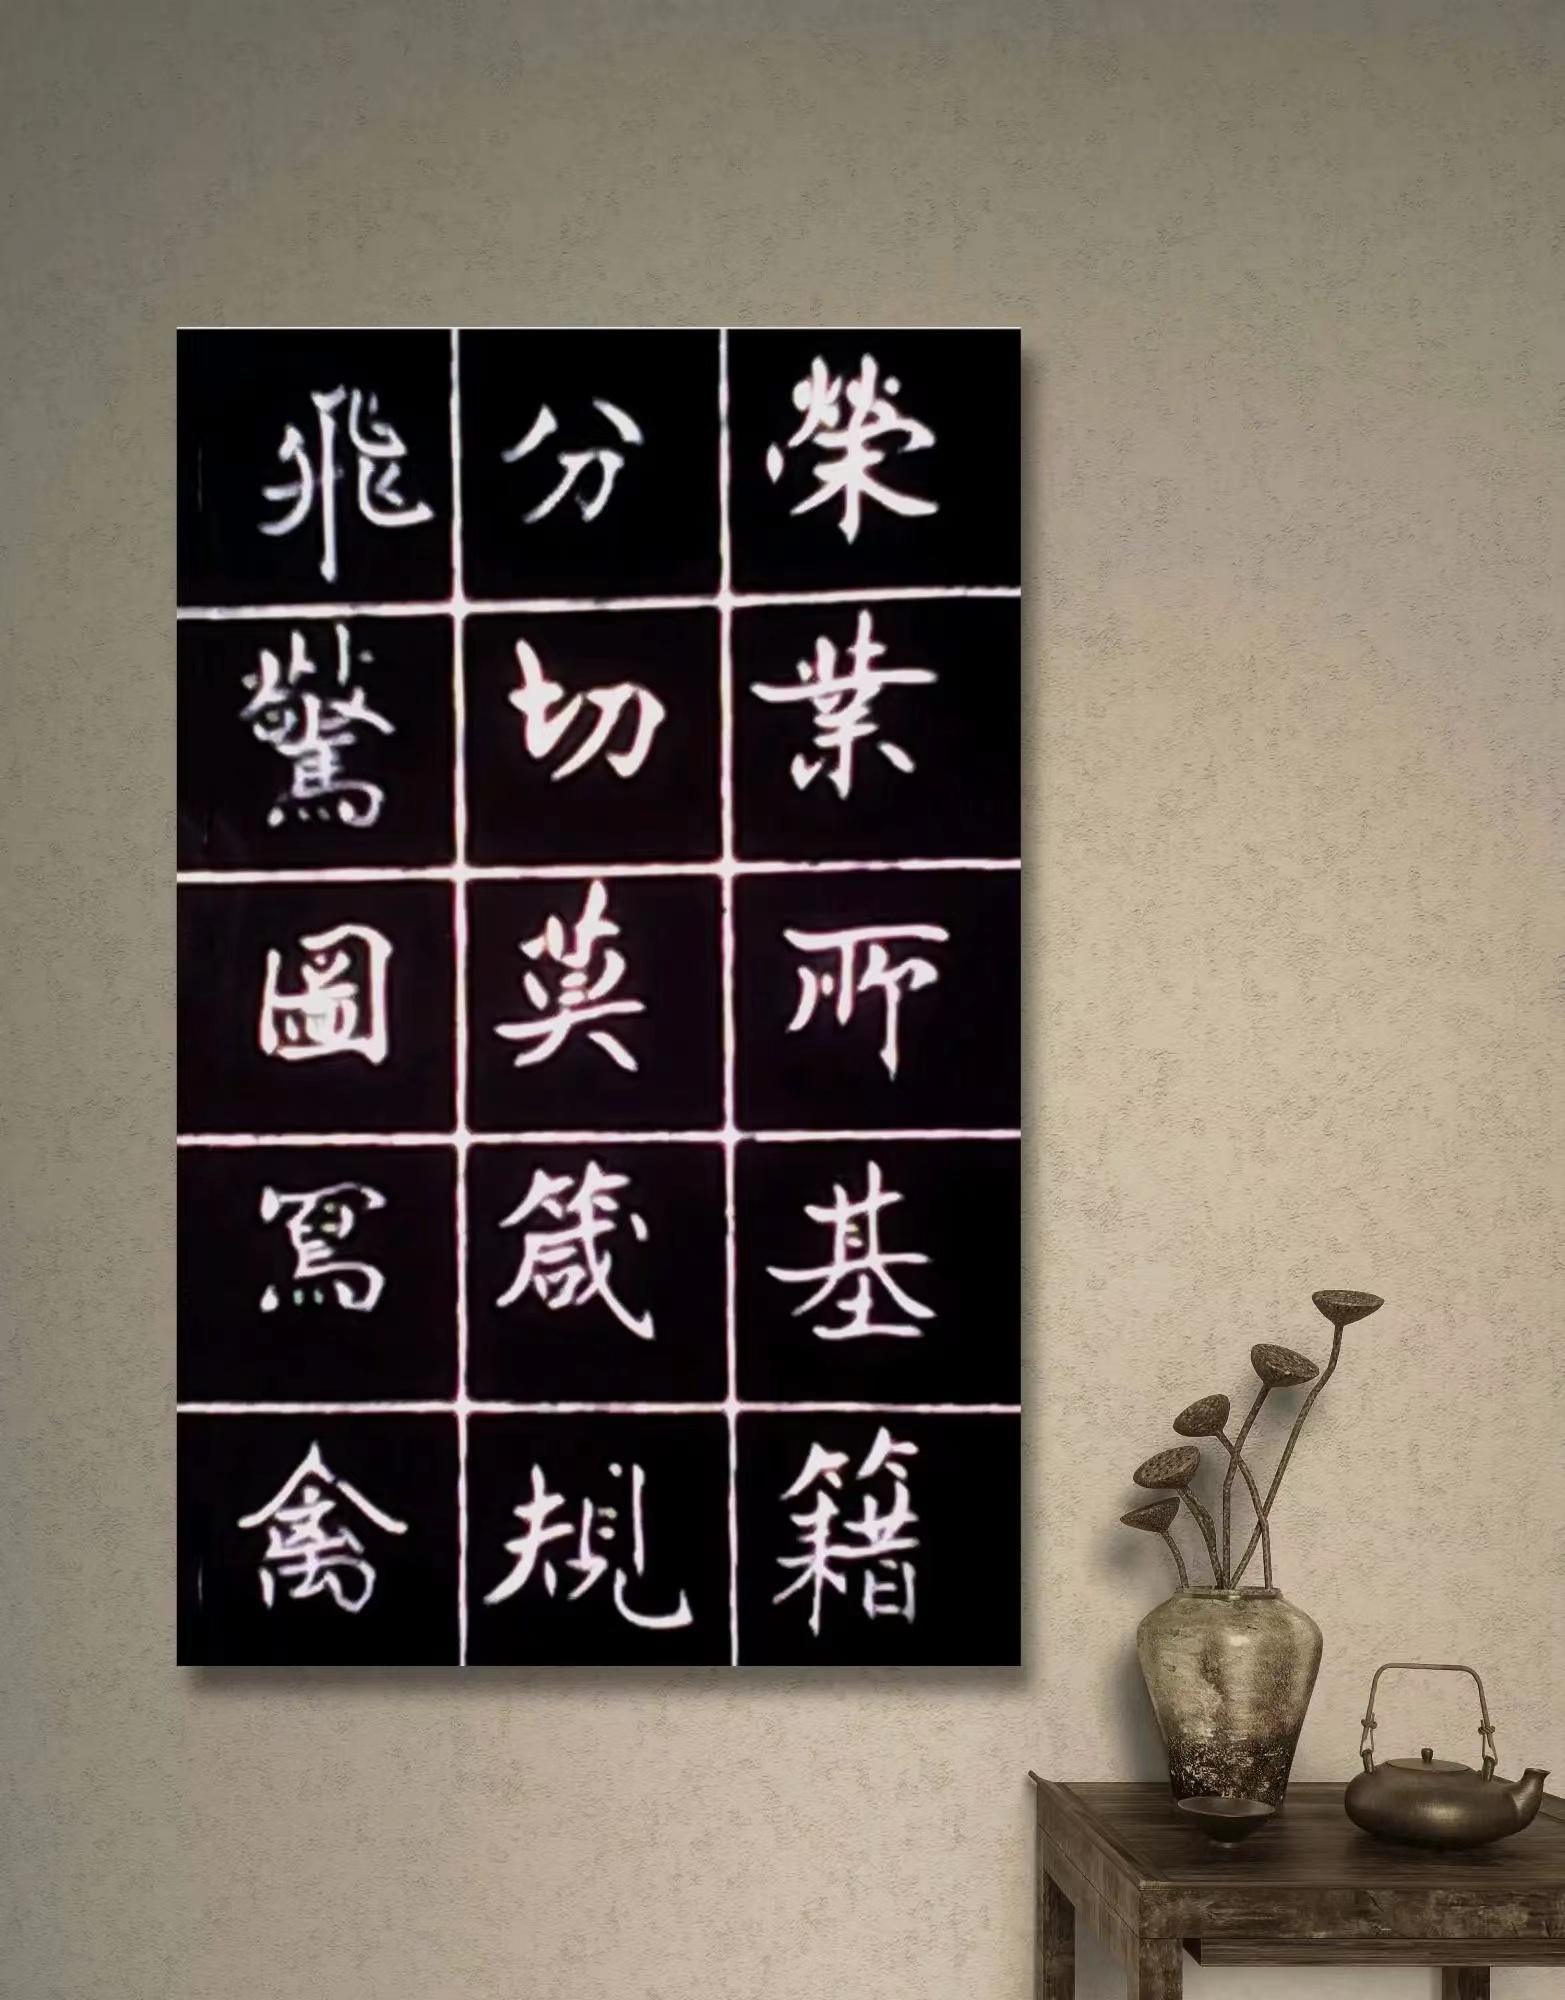 榮業所基籍
分切莫箴規
飛驚圖寫禽